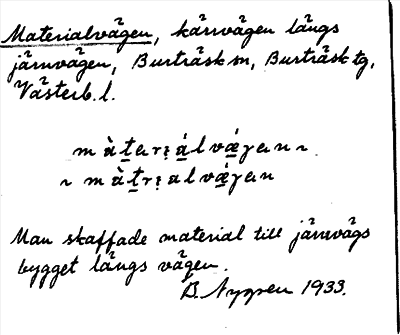 Materialvägen, kärrvägen längs
järnvägen, Burträsk sn, Burträsk tg,
Västerb. l.
m à t a r i á l v ǽ g a n ~
~ m à t r i a l v ǽ g a n
Man skaffade material till järnvägs
bygget längs vägen.
B. Nygren 1933.